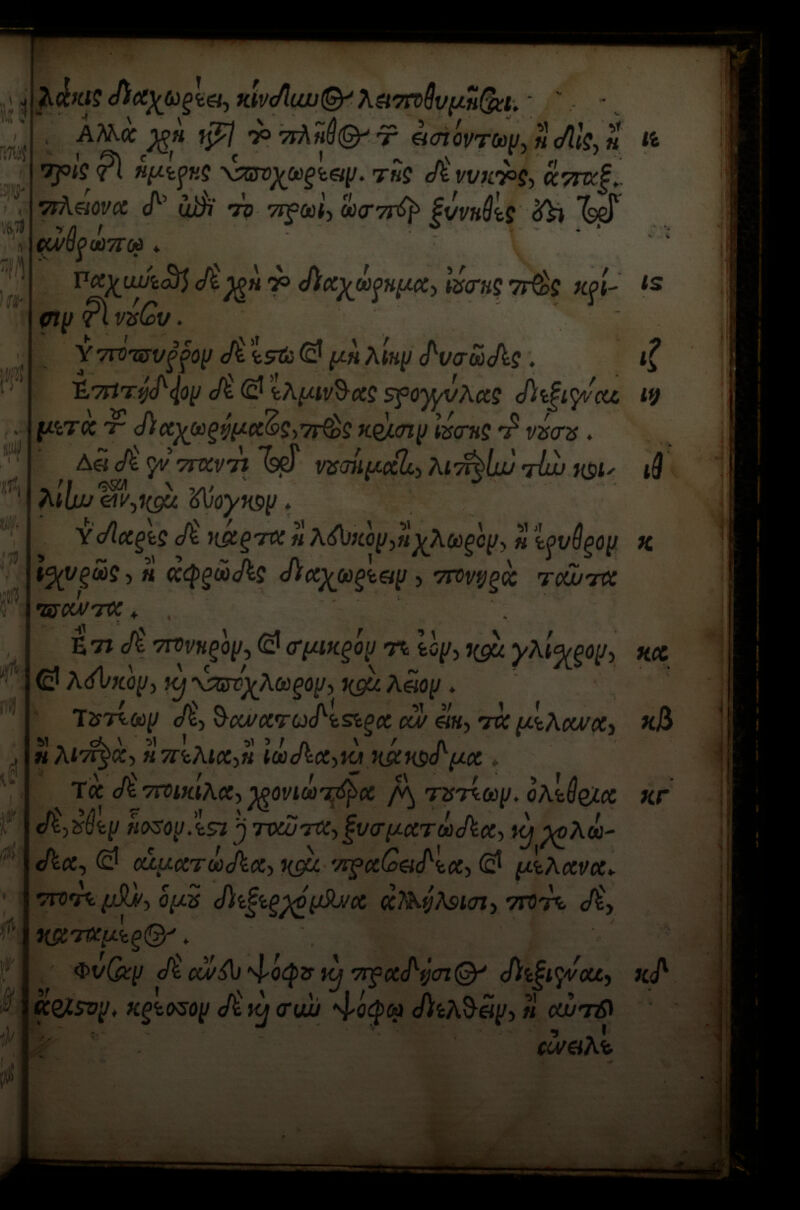 λάκις διαχωρέει, κίνδυνος λειποθυμῆσαι.
Ἀλλὰ χρὴ κατὰ τὸ πλῆθος τῶν ἐσιόντωμ, ἢ δὶς, ἢ ιε
τρὶς τῆς ἡμέρης ὑποχωρέειμ. τῆς δὲ νυκτὸς, ἅπαξ.
πλείονα δ' ὑπὸ τὸ πρωῒ, ὥσπερ ξύνηθες ὂν τῷ
ἀνθρώπῳ.
Παχύνεσθαι δὲ χρὴ τὸ διαχώρημα, ἰούσης πρὸς κρί- ις
σιμ τῆς νόσου.
Ὑπόπυρρομ δὲ ἔστω καὶ μὴ λίημ δυσῶδες. ιζ
Ἐπιτήδειομ δὲ καὶ ἕλμινθας στρογγύλας διεξιέναι ιη
μετὰ τοῦ διαχωρήματος, πρὸς κρίσιμ ἰούσης τῆς νόσου.
Δεῖ δὲ ἐν παντὶ τῷ νοσήματι, λαπαρὴν τὴν κοι- ιθ
λίην εἶναι, καὶ εὔογκομ.
Ὑδαρὲς δὲ κάρτα ἢ λευκὸμ, ἢ χλωρὸμ, ἢ ἔρυθρομ κ
ἰσχυρῶς, ἢ ἀφρῶδες διαχωρέειμ, πονηρὰ ταῦτα
πάντα.
Ἔτι δὲ πονηρὸμ, καὶ σμικρόμ τε ἐὸμ, καὶ γλίσχρομ, κα
καὶ λευκὸμ, καὶ ὑπόχλωρομ, καὶ λεῖομ.
Τουτέωμ δὲ, θανατωδέστερα ἂν εἴη, τὰ μέλανα, κβ
ἢ λιπαρὰ, ἢ πέλια, ἢ ἰώδεα, καὶ κάκοδμα.
Τὰ δὲ ποικίλα, χρονιώτερα μὲν τουτέωμ. ὀλέθρια κγ
δὲ, οὐθὲμ ἧσσομ. ἔστι δὲ ταῦτα, ξυσματώδεα, καὶ χολώ-
δεα, καὶ αἱματώδεα, καὶ πρασοειδέα, καὶ μέλανα.
ποτὲ μὲν, ὁμοῦ διεξερχόμενα ἀλλήλοισι, ποτὲ δὲ,
κατὰ μέρος.
Φύσαμ δὲ ἄνευ ψόφου καὶ πραδήσιος διεξιέναι, κδ
ἄριστομ. κρέσσομ δὲ καὶ σὺν ψόφῳ διελθεῖμ, ἢ αὐτοῦ
ἀνειλέ